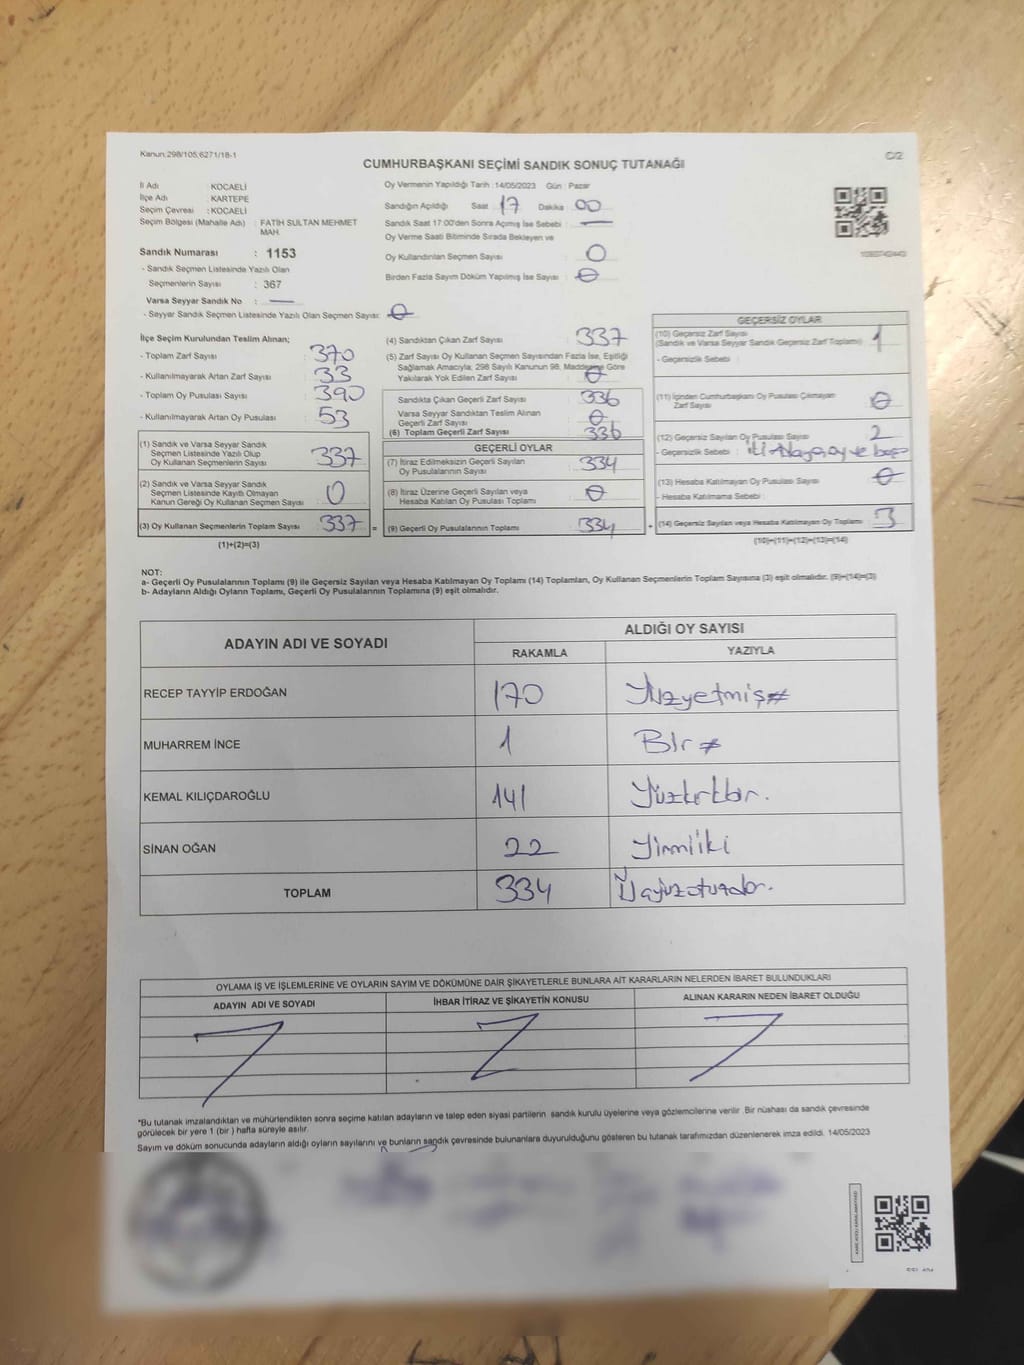 Kanun:298/105,6271/18-1
C/2
CUMHURBAŞKANI SEÇİMİ SANDIK SONUÇ TUTANAĞI
İl Adı : KOCAELİ
İlçe Adı : KARTEPE
Seçim Çevresi : KOCAELİ
Seçim Bölgesi (Mahalle Adı) : FATİH SULTAN MEHMET MAH.
Sandık Numarası : 1153
- Sandık Seçmen Listesinde Yazılı Olan
Seçmenlerin Sayısı : 367
Varsa Seyyar Sandık No : —
- Seyyar Sandık Seçmen Listesinde Yazılı Olan Seçmen Sayısı: 0
Oy Vermenin Yapıldığı Tarih :14/05/2023 Gün : Pazar
Sandığın Açıldığı Saat : 17 Dakika : 00
Sandık Saat 17:00'den Sonra Açılmış İse Sebebi : —
Oy Verme Saati Bitiminde Sırada Bekleyen ve
Oy Kullandırılan Seçmen Sayısı : 0
Birden Fazla Sayım Döküm Yapılmış İse Sayısı : 0
İlçe Seçim Kurulundan Teslim Alınan;
- Toplam Zarf Sayısı : 370
- Kullanılmayarak Artan Zarf Sayısı : 33
- Toplam Oy Pusulası Sayısı : 390
- Kullanılmayarak Artan Oy Pusulası : 53
(1) Sandık ve Varsa Seyyar Sandık
Seçmen Listesinde Yazılı Olup
Oy Kullanan Seçmenlerin Sayısı : 337
(2) Sandık ve Varsa Seyyar Sandık
Seçmen Listesinde Kayıtlı Olmayan
Kanun Gereği Oy Kullanan Seçmen Sayısı : 0
(3) Oy Kullanan Seçmenlerin Toplam Sayısı : 337 =
(1)+(2)=(3)
(4) Sandıktan Çıkan Zarf Sayısı : 337
(5) Zarf Sayısı Oy Kullanan Seçmen Sayısından Fazla İse, Eşitliği
Sağlamak Amacıyla; 298 Sayılı Kanunun 98. Maddesine Göre
Yakılarak Yok Edilen Zarf Sayısı : 0
Sandıkta Çıkan Geçerli Zarf Sayısı : 336
Varsa Seyyar Sandıktan Teslim Alınan
Geçerli Zarf Sayısı : 0
(6) Toplam Geçerli Zarf Sayısı : 336
GEÇERLİ OYLAR
(7) İtiraz Edilmeksizin Geçerli Sayılan
Oy Pusulalarının Sayısı : 334
(8) İtiraz Üzerine Geçerli Sayılan veya
Hesaba Katılan Oy Pusulası Toplamı : 0
(9) Geçerli Oy Pusulalarının Toplamı : 334 +
GEÇERSİZ OYLAR
(10) Geçersiz Zarf Sayısı
(Sandık ve Varsa Seyyar Sandık Geçersiz Zarf Toplamı) : 1
- Geçersizlik Sebebi :
(11) İçinden Cumhurbaşkanı Oy Pusulası Çıkmayan
Zarf Sayısı : 0
(12) Geçersiz Sayılan Oy Pusulası Sayısı : 2
- Geçersizlik Sebebi : iki Adaya oy ve boş
(13) Hesaba Katılmayan Oy Pusulası Sayısı : 0
- Hesaba Katılmama Sebebi :
(14) Geçersiz Sayılan veya Hesaba Katılmayan Oy Toplamı : 3
(10)+(11)+(12)+(13)=(14)
NOT:
a- Geçerli Oy Pusulalarının Toplamı (9) ile Geçersiz Sayılan veya Hesaba Katılmayan Oy Toplamı (14) Toplamları, Oy Kullanan Seçmenlerin Toplam Sayısına (3) eşit olmalıdır. (9)+(14)=(3)
b- Adayların Aldığı Oyların Toplamı, Geçerli Oy Pusulalarının Toplamına (9) eşit olmalıdır.
ADAYIN ADI VE SOYADI
ALDIĞI OY SAYISI
RAKAMLA YAZIYLA
RECEP TAYYİP ERDOĞAN 170 Yüzyetmiş#
MUHARREM İNCE 1 Bir #
KEMAL KILIÇDAROĞLU 141 Yüzkırkbir.
SİNAN OĞAN 22 Yirmiiki
TOPLAM 334 Üçyüzotuzdör.
OYLAMA İŞ VE İŞLEMLERİNE VE OYLARIN SAYIM VE DÖKÜMÜNE DAİR ŞİKAYETLERLE BUNLARA AİT KARARLARIN NELERDEN İBARET BULUNDUKLARI
ADAYIN ADI VE SOYADI İHBAR İTİRAZ VE ŞİKAYETİN KONUSU ALINAN KARARIN NEDEN İBARET OLDUĞU
*Bu tutanak imzalandıktan ve mühürlendikten sonra seçime katılan adayların ve talep eden siyasi partilerin sandık kurulu üyelerine veya gözlemcilerine verilir .Bir nüshası da sandık çevresinde
görülecek bir yere 1 (bir ) hafta süreyle asılır.
Sayım ve döküm sonucunda adayların aldığı oyların sayılarını ve bunların sandık çevresinde bulunanlara duyurulduğunu gösteren bu tutanak tarafımızdan düzenlenerek imza edildi. 14/05/2023